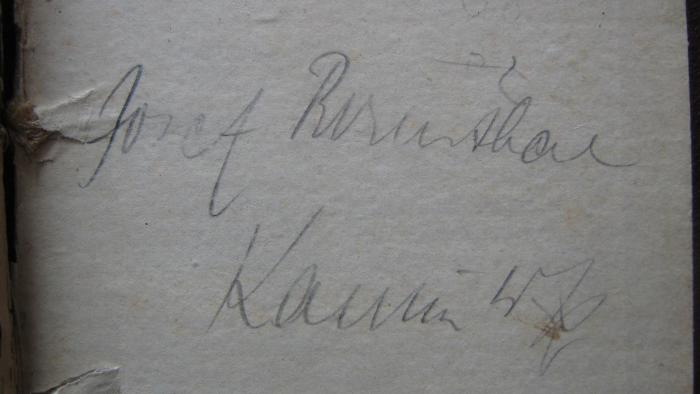 Josef Rosenthal
Kamin